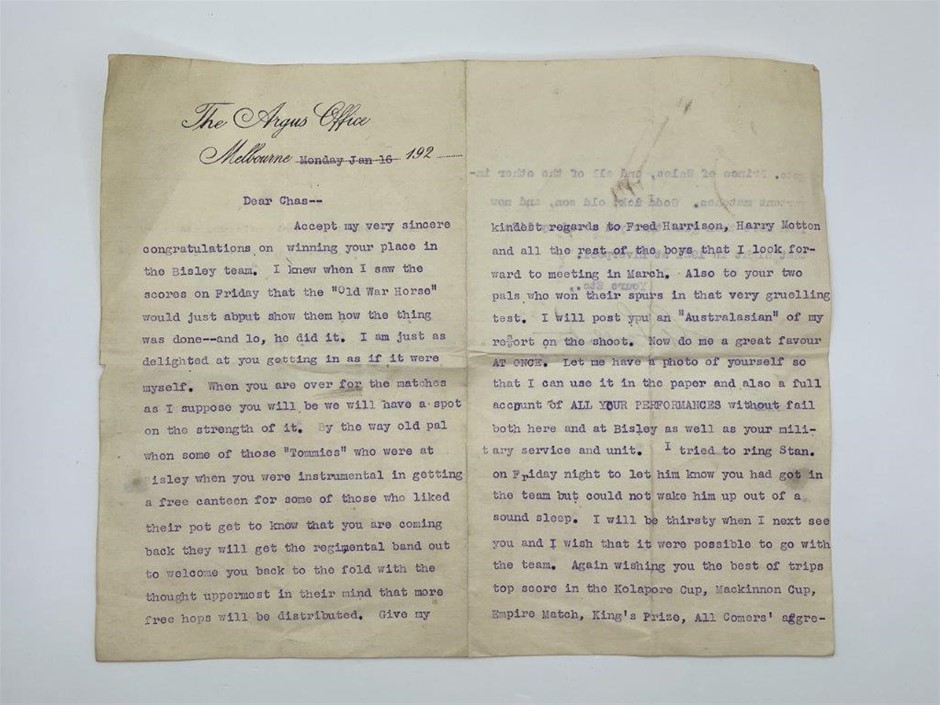 The Argus Office
Melbourne Monday Jan 16 192
Dear Chas--
Accept my very sincere
congratulations on winning your place in
the Bisley team. I knew when I saw the
scores on Friday that the "Old War Horse"
would just abput show them how the thing
was done--and lo, he did it. I am just as
delighted at you getting in as if it were
myself. When you are over for the matches
as I suppose you will be we will have a spot
on the strength of it. By the way old pal
when some of those "Tommies" who were at
isley when you were instrumental in getting
a free canteen for some of those who liked
their pot get to know that you are coming
back they will get the regimental band out
to welcome you back to the fold with the
thought uppermost in their mind that more
free hops will be distributed. Give my
kindest regards to Fred Harrison, Harry Motton
and all the rest of the boys that I look for-
ward to meeting in March. Also to your two
pals who won their spurs in that very gruelling
test. I will post you an "Australasian" of my
report on the shoot. Now do me a great favour
AT ONCE. Let me have a photo of yourself so
that I can use it in the paper and also a full
account of ALL YOUR PERFORMANCES without fail
both here and at Bisley as well as your mili-
tary service and unit. I tried to ring Stan.
on Friday night to let him know you had got in
the team but could not wake him up out of a
sound sleep. I will be thirsty when I next see
you and I wish that it were possible to go with
the team. Again wishing you the best of trips
top score in the Kolapore Cup, Mackinnon Cup,
Empire Match, King's Prize, All Comers' aggre-